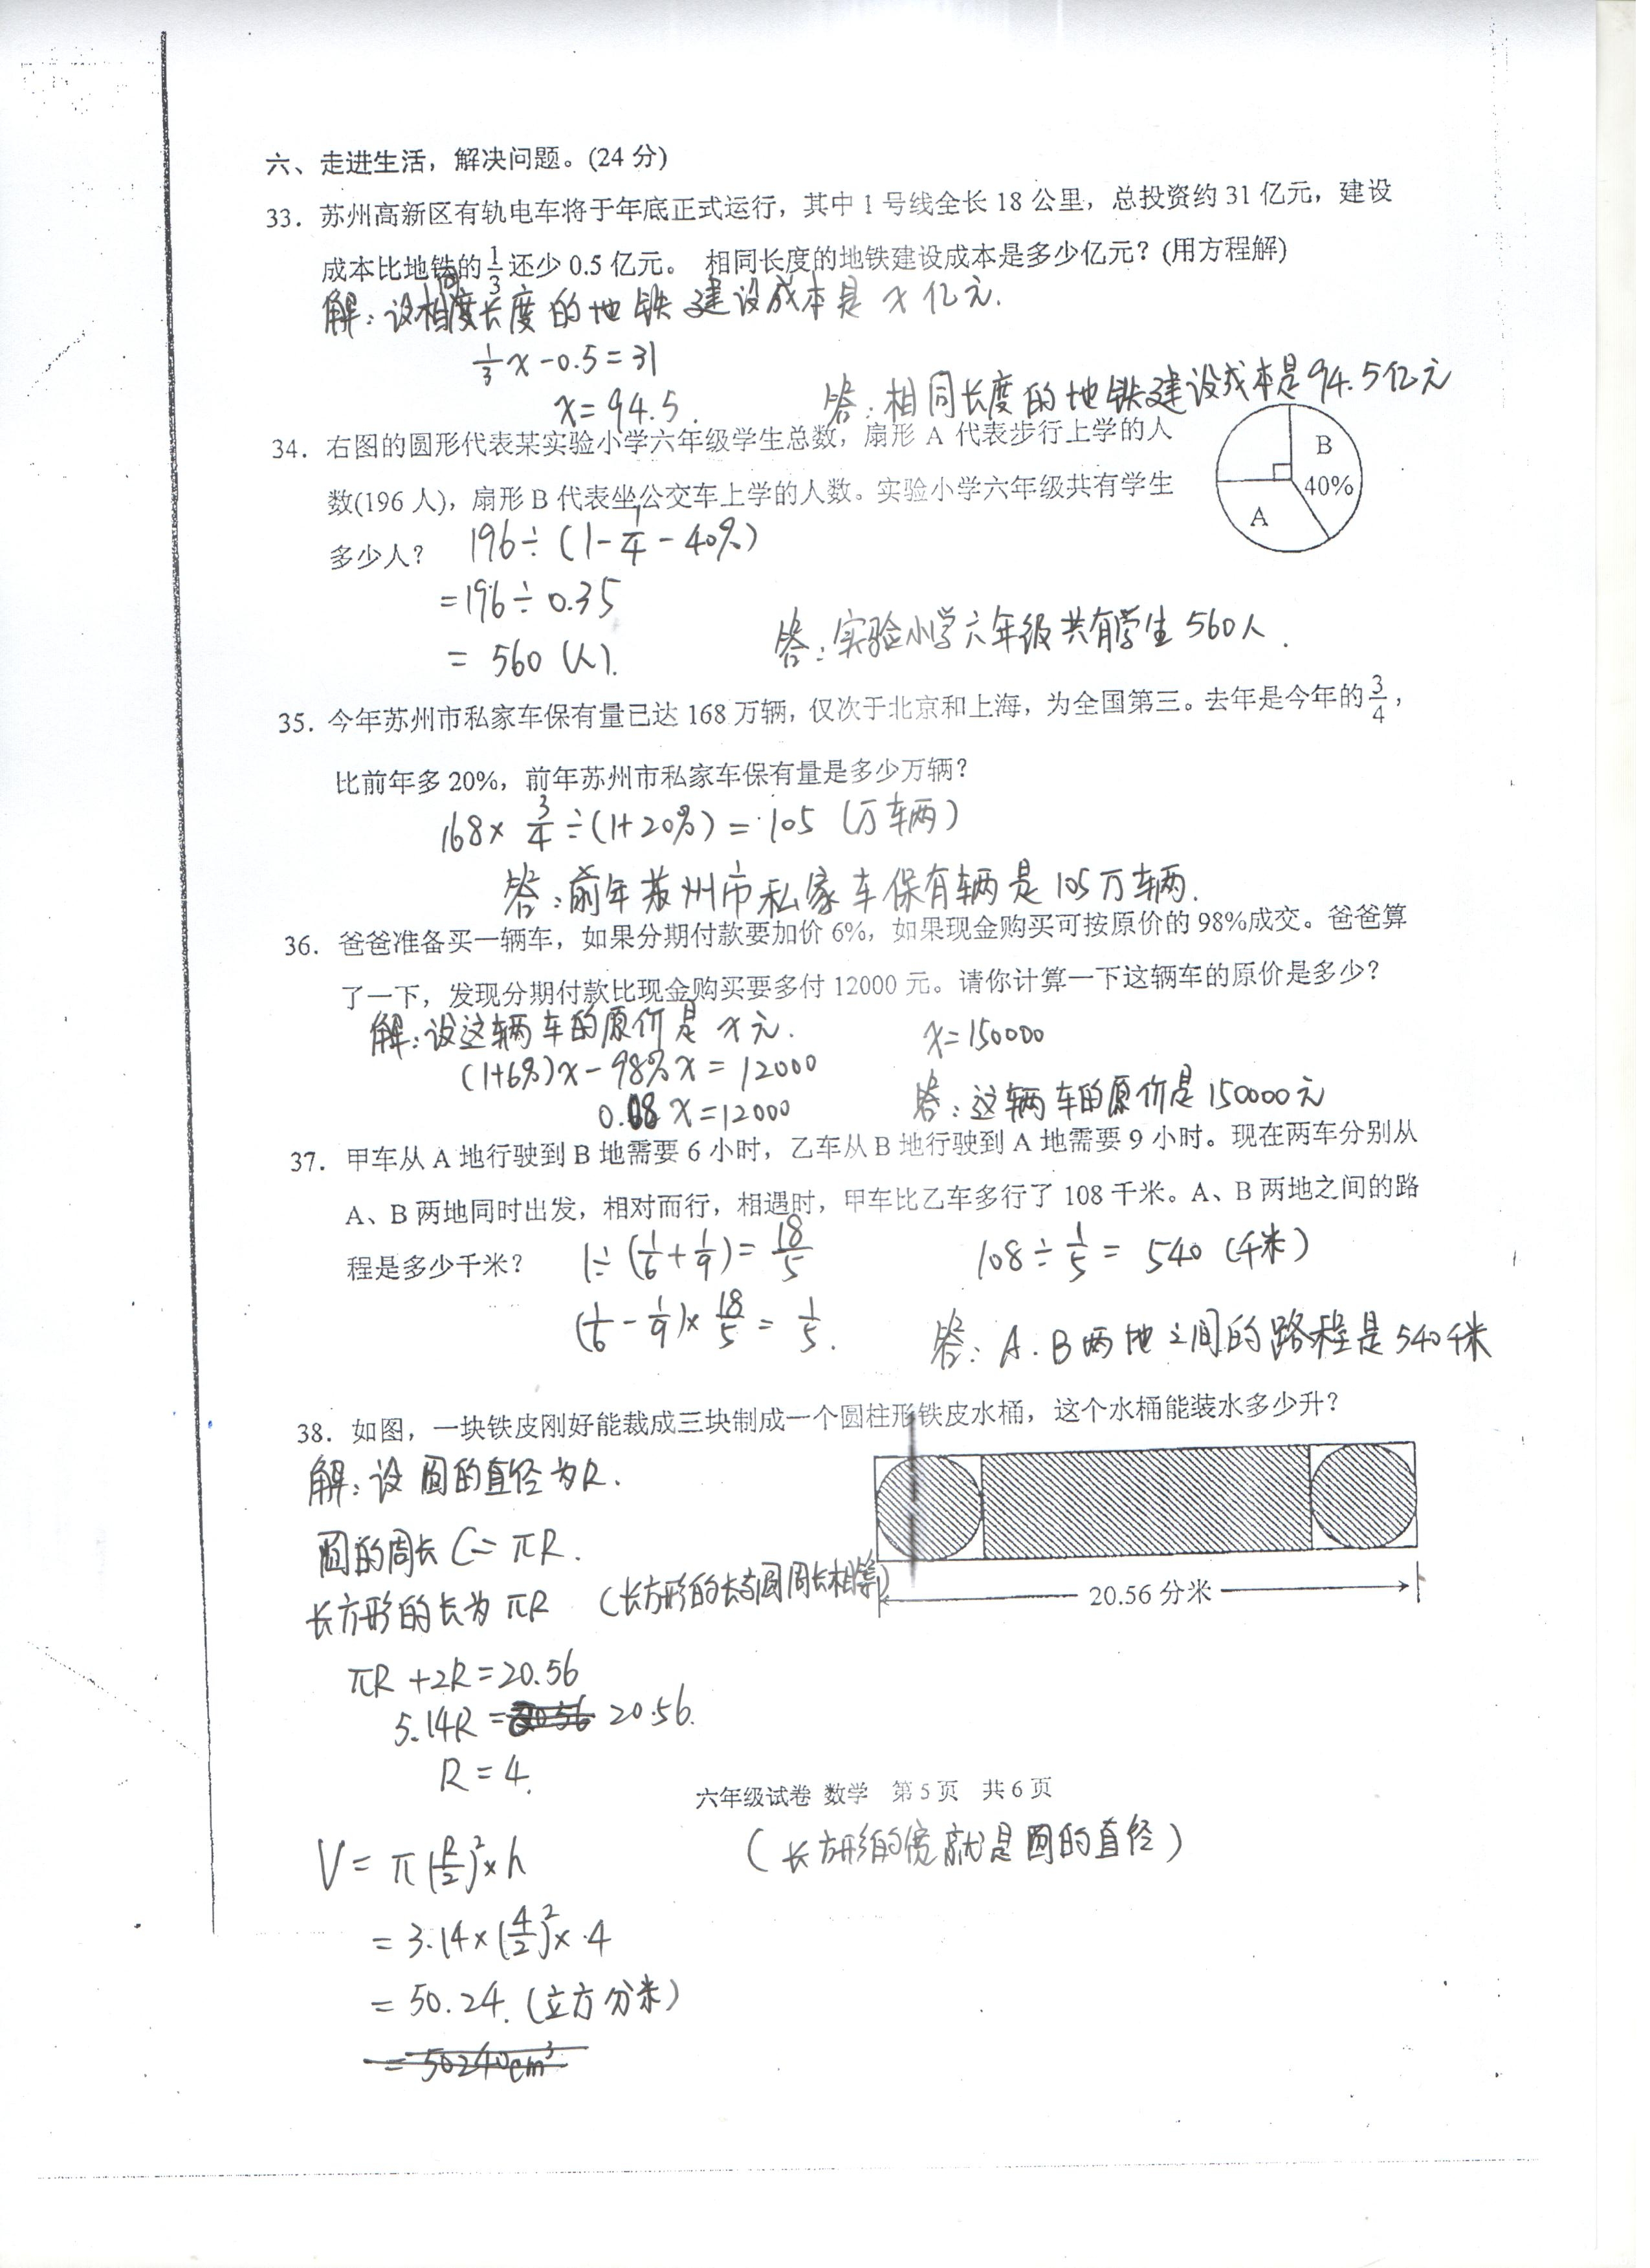 六、走进生活，解决问题。(24分)
33．苏州高新区有轨电车将于年底正式运行，其中1号线全长18公里，总投资约31亿元，建设
成本比地铁的1/3还少0.5亿元。 相同长度的地铁建设成本是多少亿元？(用方程解)
解：设相同长度的地铁建设成本是x亿元.
1/3x-0.5=31
x=94.5.
答：相同长度的地铁建设成本是94.5亿元
34．右图的圆形代表某实验小学六年级学生总数，扇形A代表步行上学的人
数(196人)，扇形B代表坐公交车上学的人数。实验小学六年级共有学生
多少人？
B
40%
A
196÷(1-1/4-40%)
=196÷0.35
=560(人).
答：实验小学六年级共有学生560人.
35．今年苏州市私家车保有量已达168万辆，仅次于北京和上海，为全国第三。去年是今年的3/4，
比前年多20%，前年苏州市私家车保有量是多少万辆？
168×3/4÷(1+20%)=105(万车辆)
答：前年苏州市私家车保有辆是105万车辆.
36．爸爸准备买一辆车，如果分期付款要加价6%，如果现金购买可按原价的98%成交。爸爸算
了一下，发现分期付款比现金购买要多付12000元。请你计算一下这辆车的原价是多少？
解：设这辆车的原价是x元.
(1+6%)x-98%x=12000
0.08x=12000
x=150000
答：这辆车的原价是150000元
37．甲车从A地行驶到B地需要6小时，乙车从B地行驶到A地需要9小时。现在两车分别从
A、B两地同时出发，相对而行，相遇时，甲车比乙车多行了108千米。A、B两地之间的路
程是多少千米？
1÷(1/6+1/9)=18/5
(1/6-1/9)×18/5=1/5.
108÷1/5=540(千米)
答：A.B两地之间的路程是540千米
38．如图，一块铁皮刚好能裁成三块制成一个圆柱形铁皮水桶，这个水桶能装水多少升？
解：设圆的直径为R.
圆的周长C=πR.
长方形的长为πR (长方形的长与圆周长相等)
20.56分米
πR+2R=20.56
5.14R=20.56.
R=4.
六年级试卷 数学 第5页 共6页
(长方形的宽就是圆的直径)
V=π(R/2)²×h
=3.14×(4/2)²×4
=50.24.(立方分米)
=50240cm³